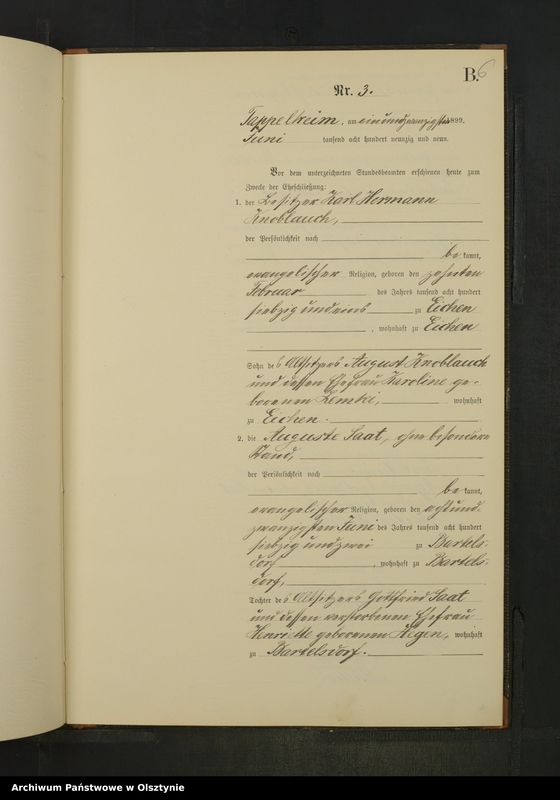 B. 6
Nr. 3.
Tappelkeim, am einundzwanzigsten 1899.
Juni tausend acht hundert neunzig und neun.
Vor dem unterzeichneten Standesbeamten erschienen heute zum
Zwecke der Eheschließung:
1. der Besitzer Karl Hermann
Knoblauch,
der Persönlichkeit nach
be kannt,
evangelischer Religion, geboren den zehnten
Februar des Jahres tausend acht hundert
siebzig und eins zu Eichen
, wohnhaft zu Eichen
Sohn des Altsitzers August Knoblauch
und dessen Ehefrau Karoline ge-
borenen Lemki, wohnhaft
zu Eichen.
2. die Auguste Saat, ohne besonderen
Stand,
der Persönlichkeit nach
be kannt,
evangelischer Religion, geboren den achtund-
zwanzigsten Juni des Jahres tausend acht hundert
siebzig und zwei zu Bartels-
dorf, wohnhaft zu Bartels-
dorf,
Tochter des Altsitzers Gottfried Saat
und dessen verstorbenen Ehefrau
Henriette geborenen Hegen, wohnhaft
zu Bartelsdorf.
Archiwum Państwowe w Olsztynie